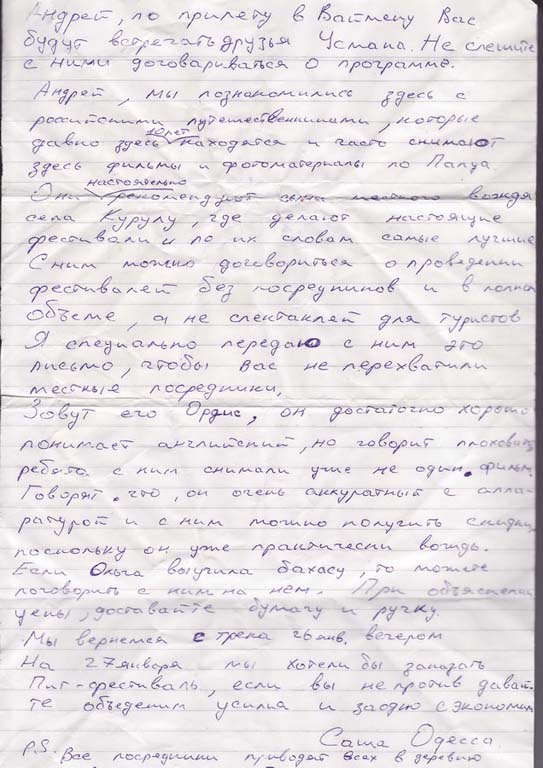 Андрей, по прилету в Вамену Вас
будут встречать друзья Усмана. Не спешите
с ними договариваться о программе.
Андрей, мы познакомились здесь с
российскими путешественниками, которые
давно здесь 10 лет находятся и часто снимают
здесь фильмы и фотоматериалы по Папуа.
Они настоятельно рекомендуют сына местного вождя
села Курулу, где делают настоящие
фестивали и по их словам самые лучшие
С ним можно договориться о проведении
фестивалей без посредников и в полном
объеме, а не спектаклей для туристов
Я специально передаю с ним это
письмо, чтобы Вас не перехватили
местные посредники.
Зовут его Ордис, он достаточно хорошо
понимает английский, но говорит плоховато
ребята с ним снимали уже не один фильм
Говорят что, он очень аккуратный с аппа-
ратурой и с ним можно получить скидки
поскольку он уже практически вождь.
Если Ольга выучила бахасу, то можете
поговорить с ним на нем. При объяснении
цены, доставайте бумагу и ручку.
Мы вернемся с трека 26 янв. вечером
На 27 января мы хотели бы заказать
Пиг-фестиваль, если вы не против давай-
те объеденим усилия и заодно сэкономим
Саша Одесса.
P.S. Все посредники приводят всех в деревню